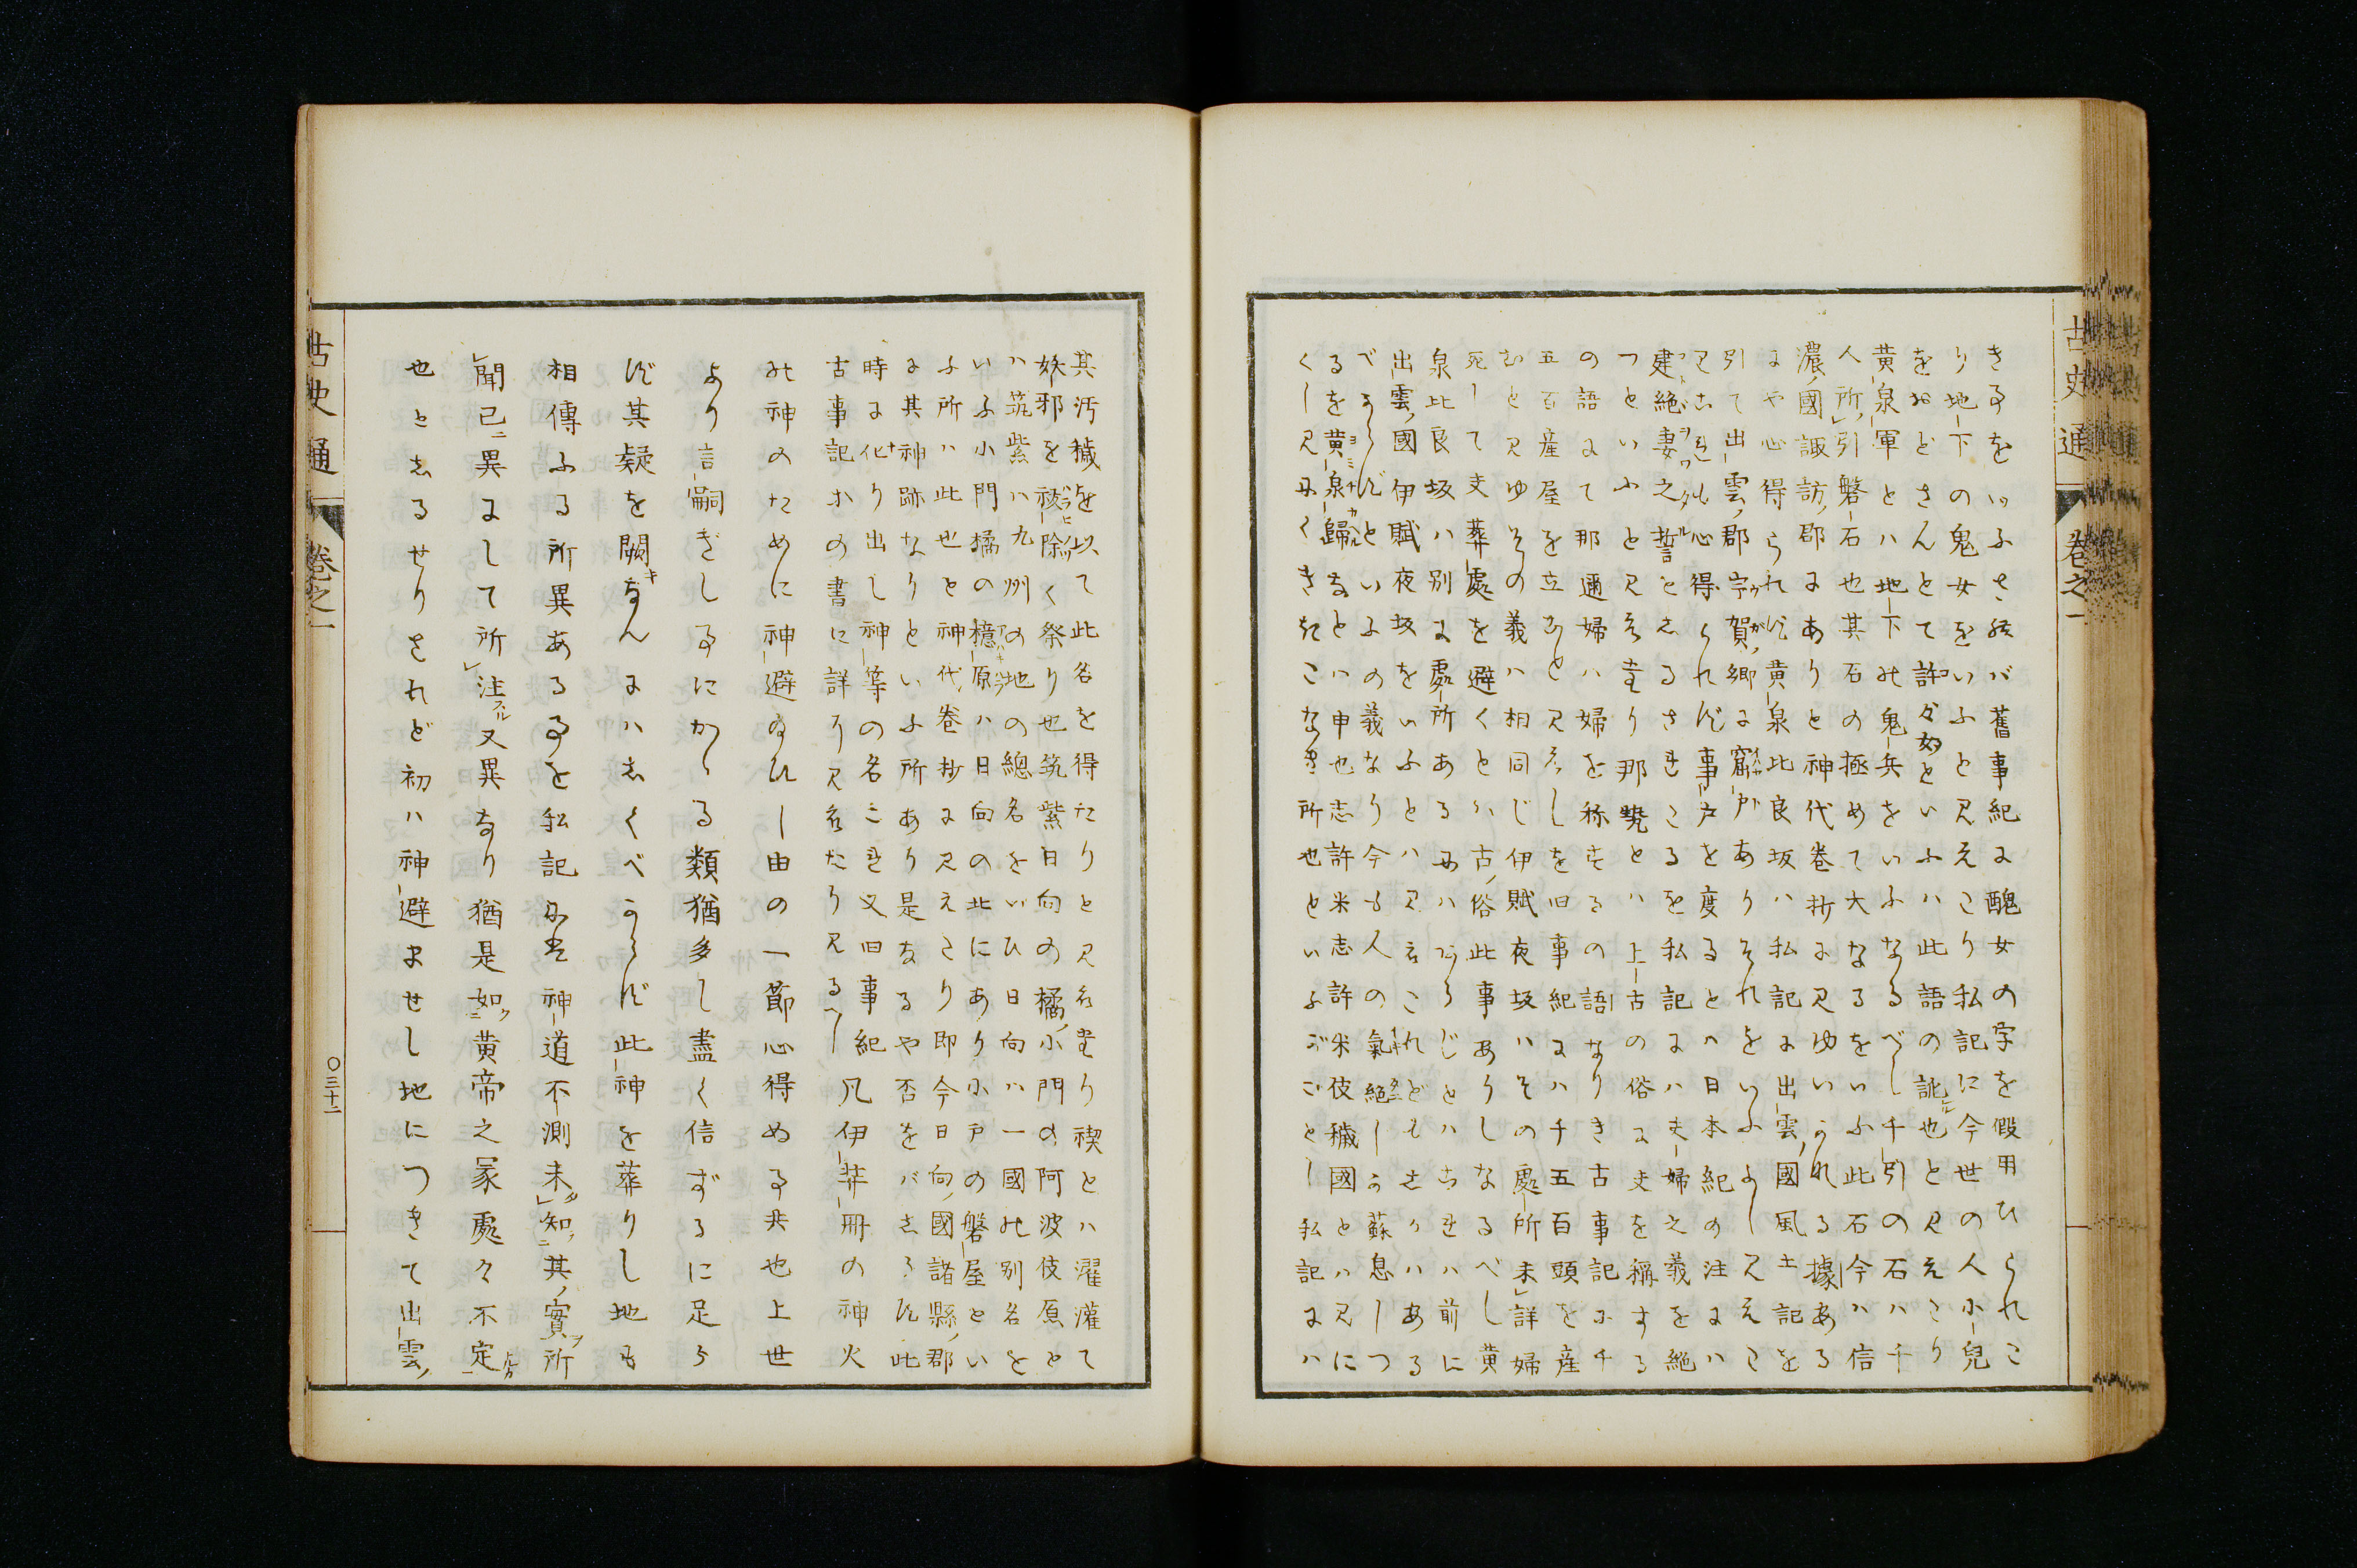 古史通
卷之一
き事をいふさ社バ舊事紀に醜女の字を假用ひられた
り地下の鬼女をいふと見えたり私記に今世の人小兒
をおどさんとて許々女といふハ此語の訛也と見えたり
黄泉軍とハ地下の鬼兵をいふなるべし千引の石ハ千
人所引磐石也其石の極めて大なるをいふ此石今ハ信
濃國諏訪郡にありと神代卷抄に見ゆいづれる據ある
にや心得られず黄泉比良坂ハ私記に出雲國風土記を
引て出雲郡宇賀郷に窟戸ありそれをいふよし見えた
れどもこれ心得られず事戸を度るとハ日本紀の注にハ
建絶妻之誓としるされたるを私記にハ夫婦之義を絶
つといふと見えたり那勢とハ上古の俗に夫を稱する
の語にて那邇婦ハ婦を称するの語なりき古事記に千
五百産屋を立むと見えしを旧事紀にハ千五百頭を産
むと見ゆその義ハ相同じ伊賦夜坂ハその處所未詳婦
死して夫葬處を避くとハ古俗此事ありしなるべし黄
泉比良坂ハ別に處所あるにハあらじとハこれハ前に
出雲國伊賦夜坂をいふとハ見えたれどもしかハある
べからずといふの義なり今も人の氣絶しう蘇息しつ
るを黄泉歸なとハ申也志許米志許米伎穢國とハ見に
くし見にくききたなき所也といふがごとし私記にハ
其汚穢を以て此名を得たりと見えたり禊とハ濯灌て
妖邪を祓除く祭り也筑紫日向の橘小門の阿波伎原と
ハ筑紫ハ九州の地の總名をいひ日向ハ一國の別名を
いふ小門橘の檍原ハ日向の北にあり小戸の磐屋とい
ふ所ハ此也と神代卷抄に見えたり即今日向國諸縣郡
に其神跡なりといふ所あり是なるや否をバしらず此
時に化り出し神等の名これ又旧事紀
古事記等の書に詳り見えたり見るべし凡伊弉冊の神火
の神のために神避給ひし由の一節心得ぬる事共也上世
より言嗣ぎし事にかゝる類猶多して盡く信ずるに足ら
ず其疑を闕なんにハしくべからず此神を葬りし地も
相傳ふる所異ある事を私記にも神道不測未知其實所
聞已異にして所注又異なり猶是如黄帝之冢處々不定
也としるせりされど初ハ神避ませし地につきて出雲
古史通
卷之一
〇三十二